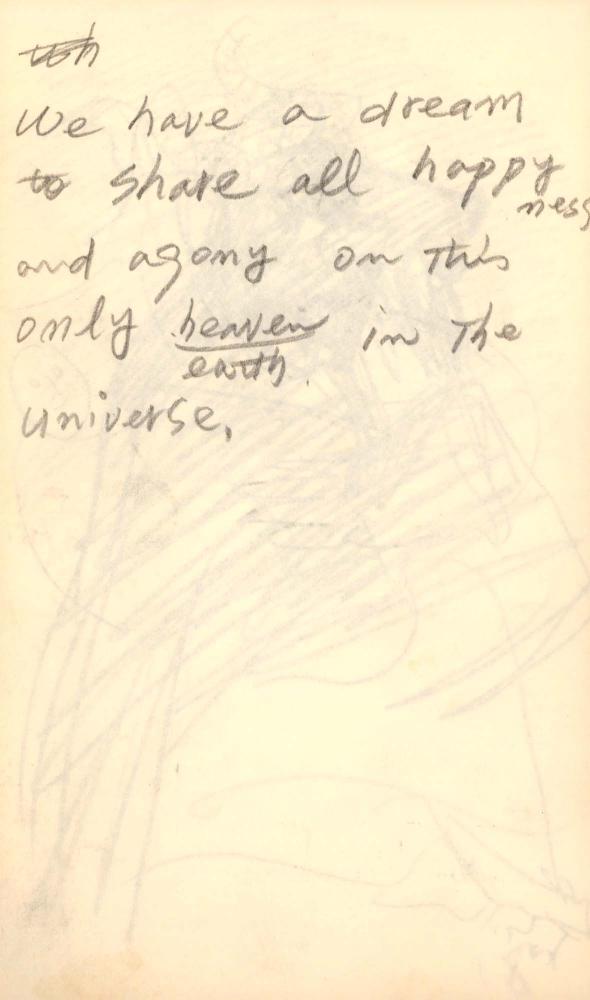 We have a dream
to share all happy
ness
and agony on this
only heaven in the
earth
universe.